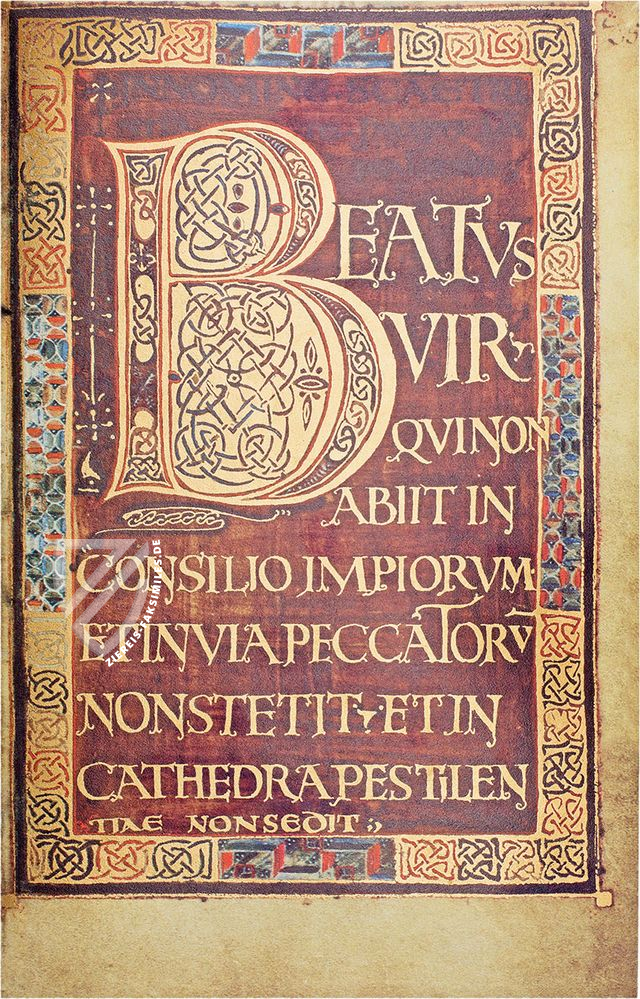 BEATVS
VIR
QVINON
ABIITIN
CONSILIO IMPIORVM·
ETINVIAPECCATORV̅
NONSTETIT·ETIN
CATHEDRAPESTILEN
TIAE NONSEDIT:,
ZIEREISFAKSIMILES.DE